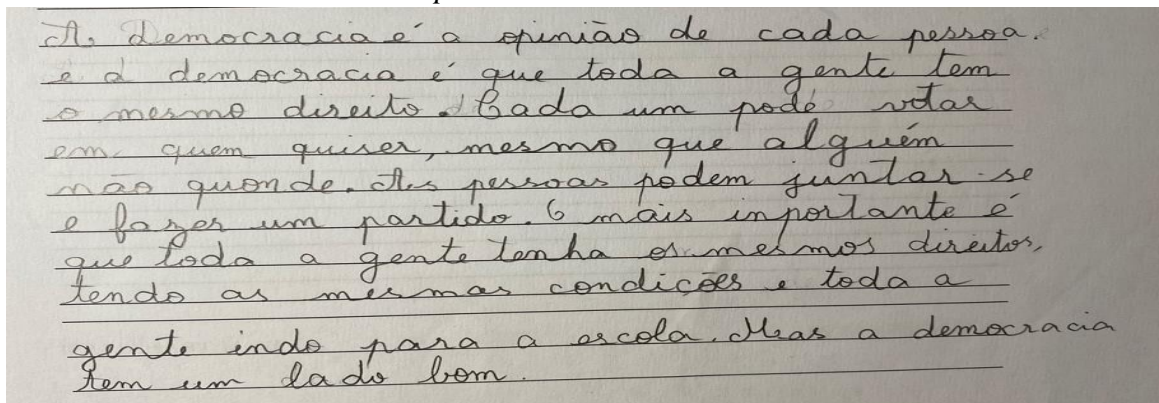 A democracia é a opinião de cada pessoa.
e a democracia é que toda a gente tem
o mesmo direito. Cada um pode votar
em quem quiser, mesmo que alguém
não quonde. As pessoas podem juntar-se
e fazer um partido. O mais inportante é
que toda a gente tenha os mesmos direitos,
tendo as mesmas condições e toda a
gente indo para a escola. Mas a democracia
tem um lado bom.